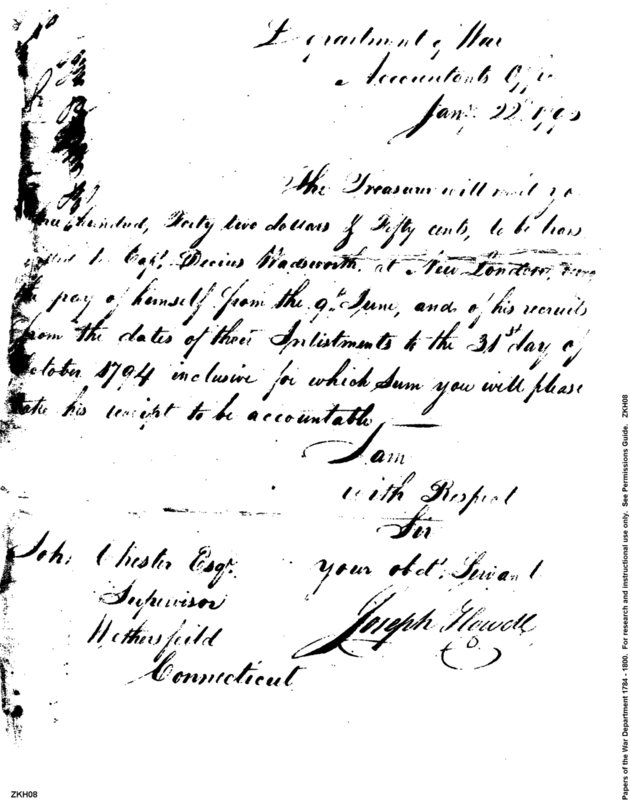 Department of War
Accountants Offi
Jany. 22d 1795
The Treasurer will remit yo
hundred, Forty two dollars & Fifty cents, to be trans
to Capt. Decius Wadsworth, at New London, being
the pay of himself from the 9th June, and of his recruits
from the dates of their Inlistments to the 31st day of
October 1794 inclusive for which Sum you will please
take his receipt to be accountable
I am
with Respect
Sir
John Chester Esqr. your obdt. Servant
Supervisor
Wethersfeild Joseph Howell
Connecticut
ZKH08
Papers of the War Department 1784 - 1800. For research and instructional use only. See Permissions Guide. ZKH08